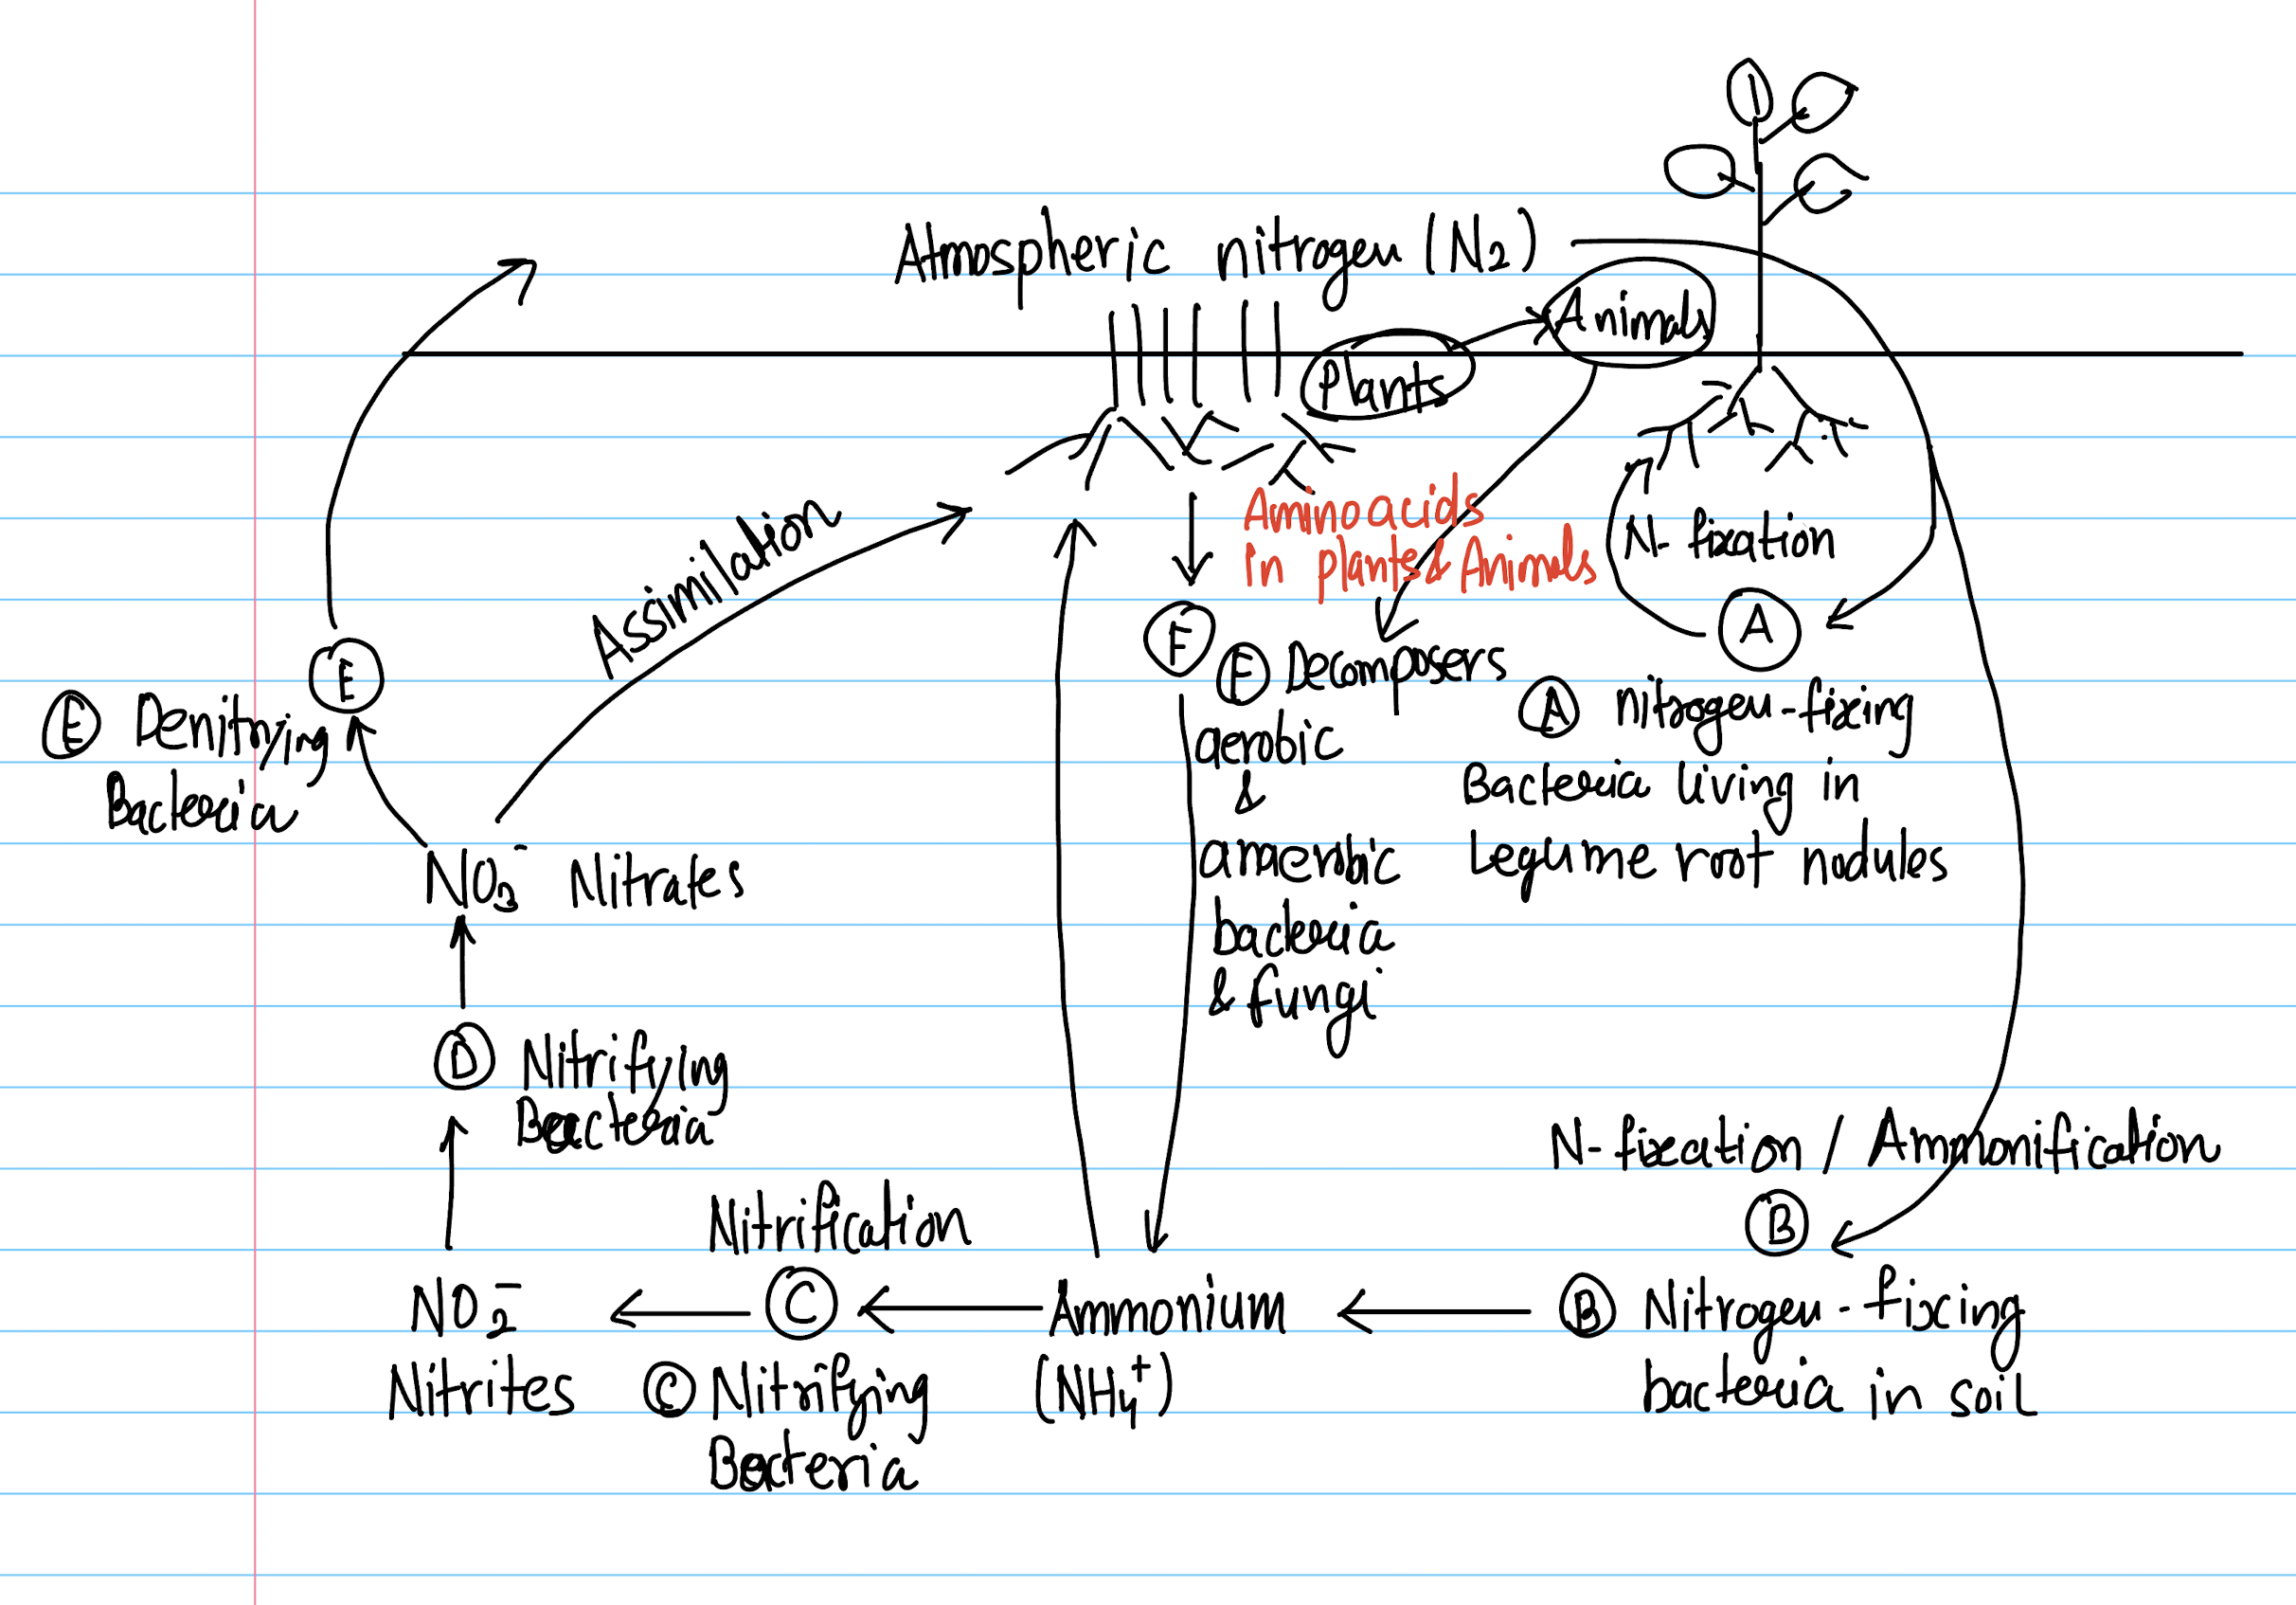 Atmospheric nitrogen (N₂)
Animals
Plants
Assimilation
Aminoacids
in plants & Animals
N-fixation
A
F
E
F Decomposers
aerobic
&
anaerobic
bacteria
& fungi
A nitrogen-fixing
Bacteria living in
Legume root nodules
E Denitrying
Bacteria
NO₃⁻ Nitrates
D Nitrifying
Bacteria
N-fixation / Ammonification
B
Nitrification
NO₂⁻
Nitrites
C
C Nitrifying
Bacteria
Ammonium
(NH₄⁺)
B Nitrogen-fixing
bacteria in soil